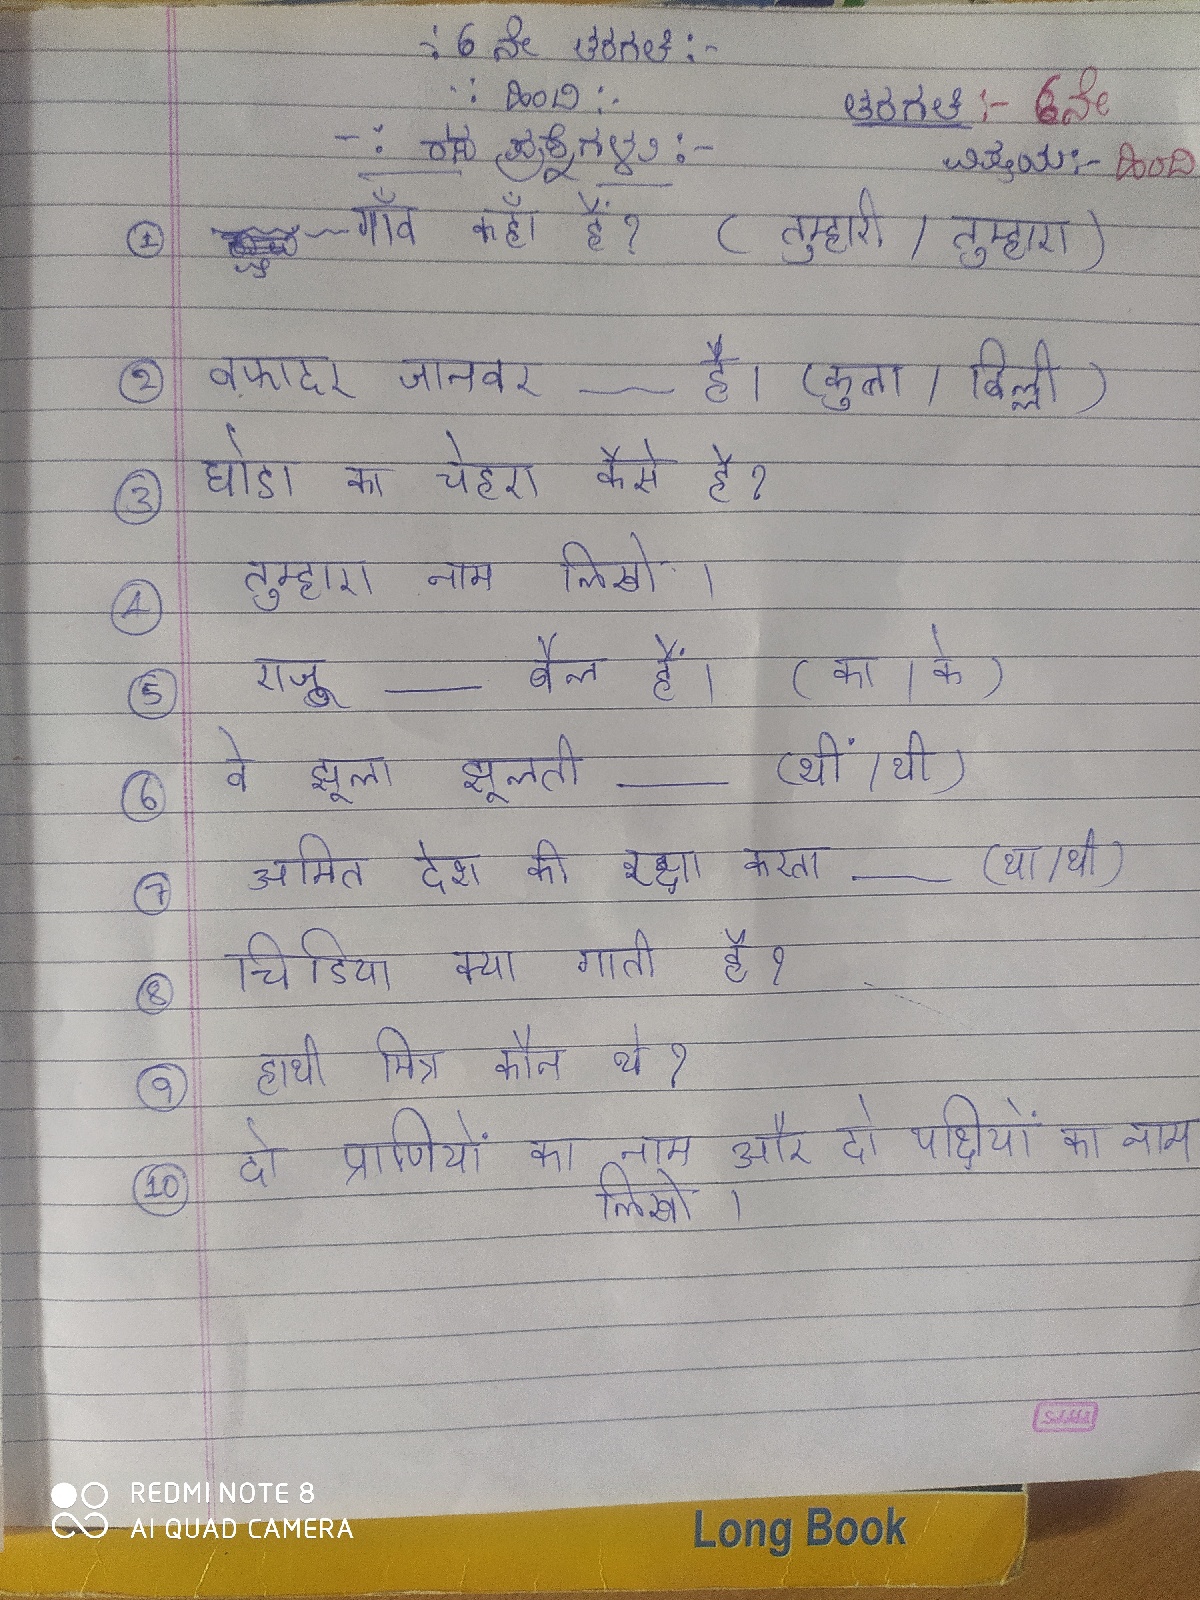 :6 ನೇ ತರಗತಿ:-
:ಹಿಂದಿ:-
ತರಗತಿ:- 6ನೇ
-: ರಸ ಪ್ರಶ್ನೆಗಳು:-
ವಿಷಯ:- ಹಿಂದಿ
① — गाँव कहाँ हैं? (तुम्हारी / तुम्हारा)
② वफ़ादर जानवर —— है। (कुत्ता / बिल्ली)
③ घोडा का चेहरा कैसे है?
④ तुम्हारा नाम लिखो।
⑤ राजू —— बैल हैं। (का / के)
⑥ वे झूला झूलती —— (थीं / थी)
⑦ अमित देश की रक्षा करता —— (था/थी)
⑧ चिडिया क्या गाती है?
⑨ हाथी मित्र कौन थे?
⑩ दो प्राणियों का नाम और दो पक्षियों का नाम
लिखो।
REDMI NOTE 8
AI QUAD CAMERA
Long Book